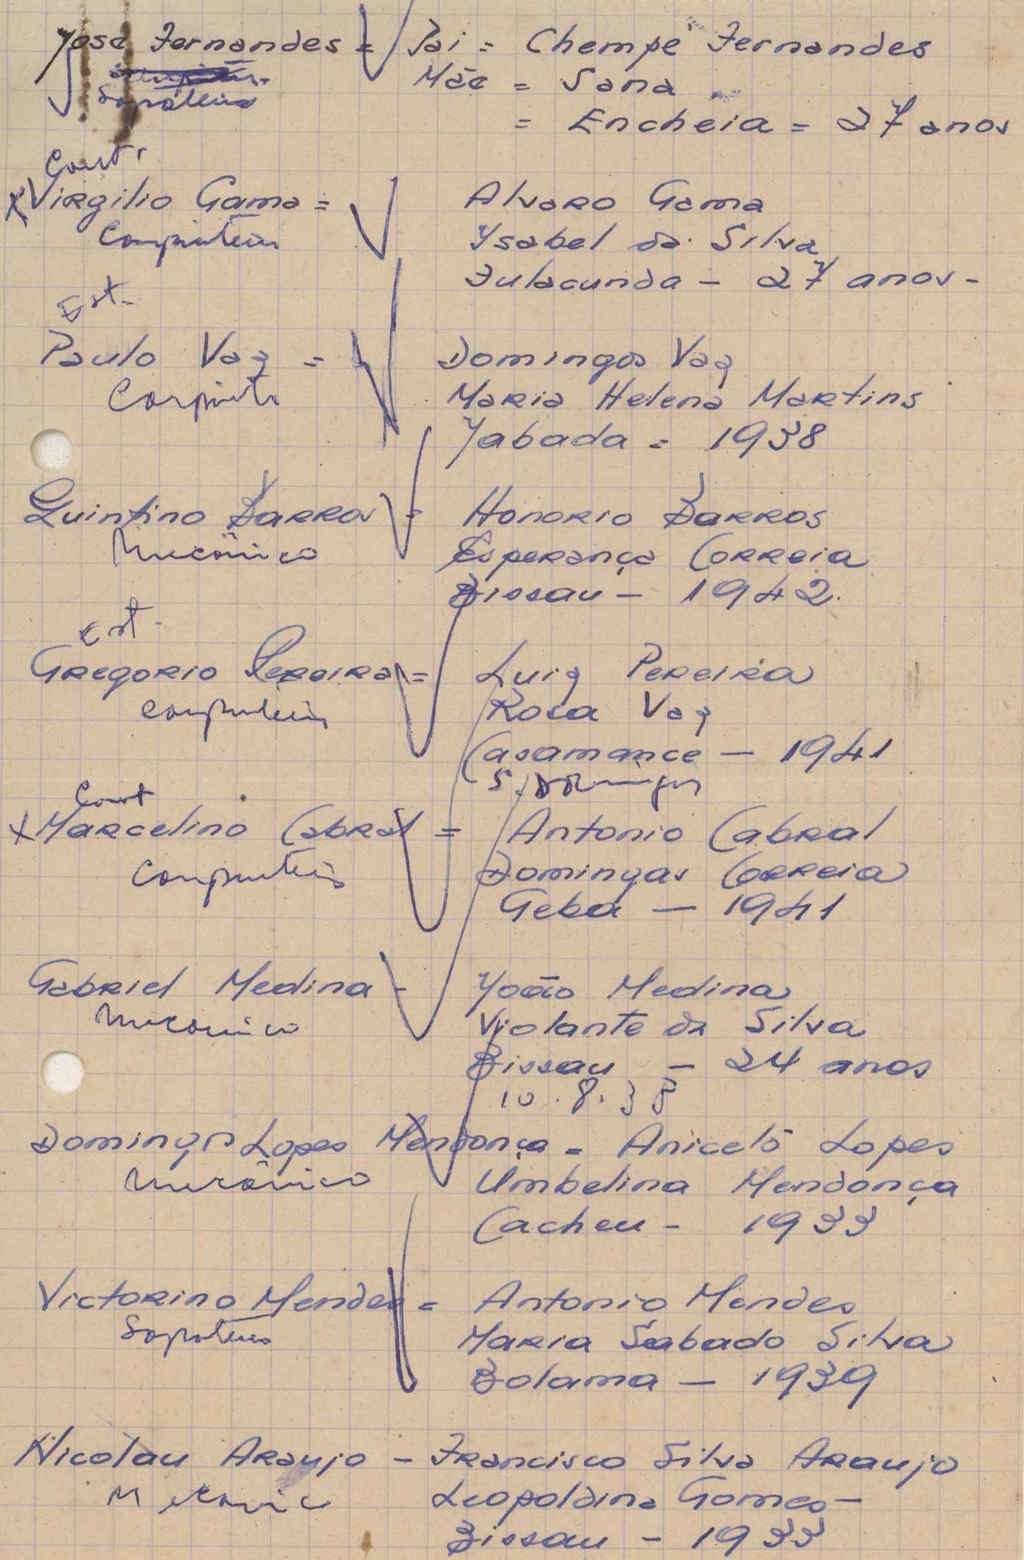 José Fernandes = Pai = Chempe Fernandes
Mãe = Sana
Sapateiro
= Encheia = 27 anos
Const.
x Virgilio Gama = Alvaro Gama
Carpinteiro Ysabel da Silva
Fulacunda - 27 anos -
Est.
Paulo Vaz = Domingos Vaz
Carpint. Maria Helena Martins
Jabada = 1938
Quintino Barros = Honorio Barros
Mecânico Esperança Correia
Bissau - 1942.
Est.
Gregorio Pereira = Luiz Pereira
Carpinteiro Rosa Vaz
Casamance - 1941
S. Domingos
Const
x Marcelino Cabral = Antonio Cabral
Carpinteiro Domingas Correia
Geba - 1941
Gabriel Medina - Yoão Medina
Mecanico Violante da Silva
Bissau - 24 anos
10.8.38
Domingos Lopes Mendonça = Aniceto Lopes
Mecânico Umbelina Mendonça
Cacheu - 1933
Victorino Mendes = Antonio Mendes
Sapateiro Maria Sabado Silva
Bolama - 1939
Nicolau Araujo - Francisco Silva Araujo
Mecanic Leopoldina Gomes -
Bissau - 1933